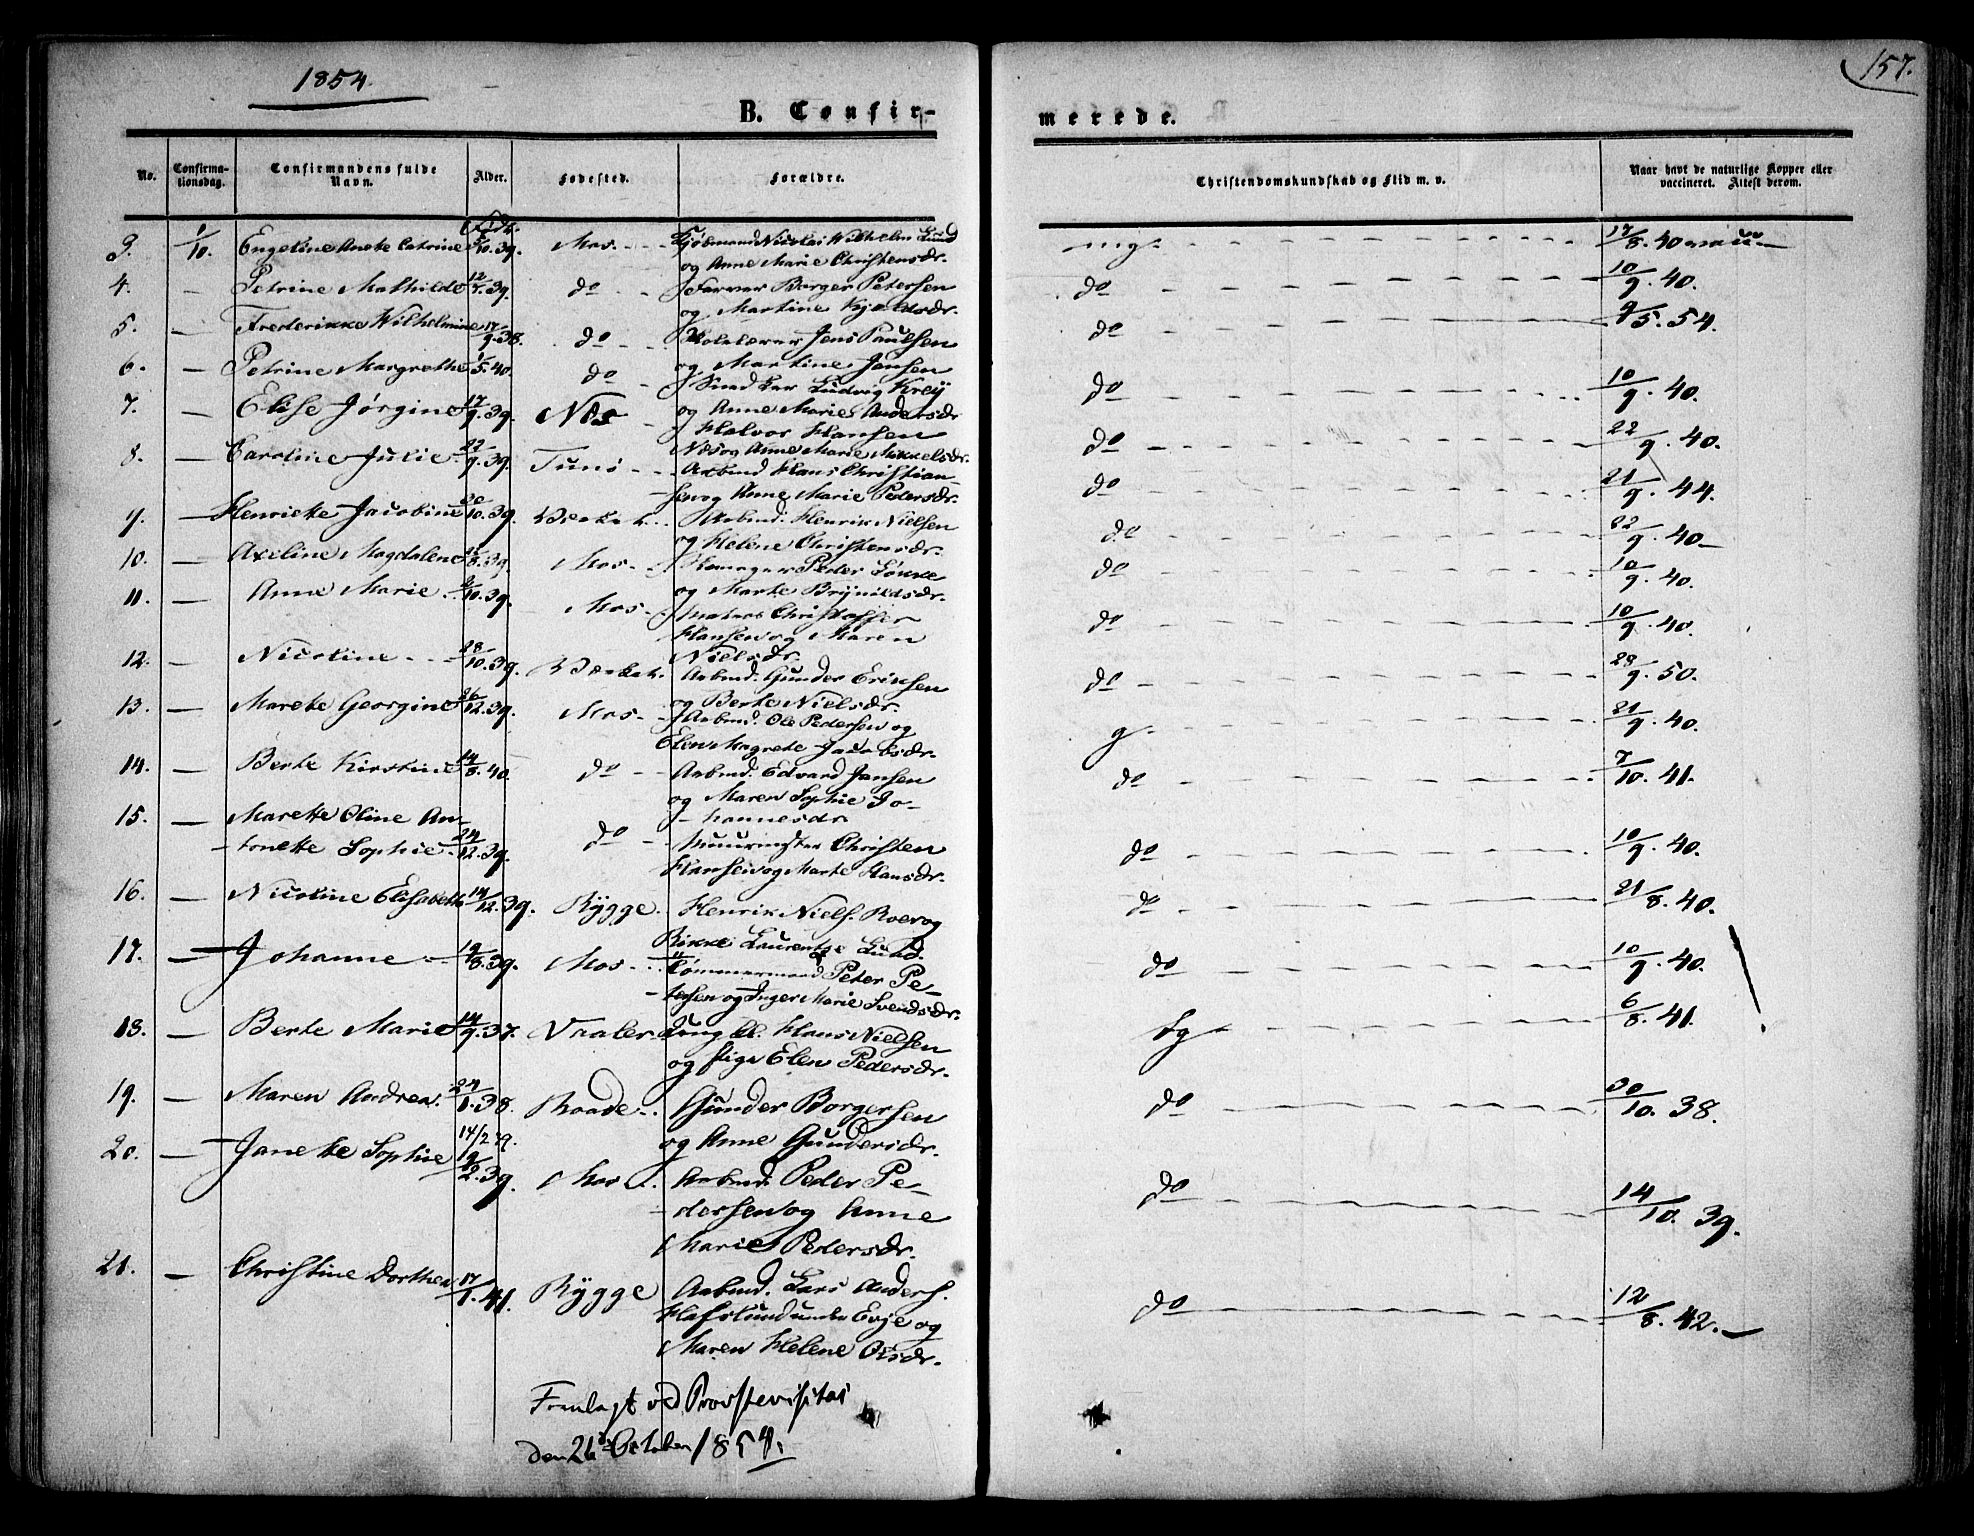 1854.
157.
B. Confir-
merede.
No.
Confirma-
tionsdag.
Confirmandens fulde
Navn.
Alder.
Fødested.
Forældre.
Christendomskundskab og Flid m. v.
Naar havt de naturlige Kopper eller
vaccineret. Attest derom.
3. 1/10 Engeline Anete Catrine 5/10.39. Mos. Nicolai Wilhelm Lund mg. 17/8.40
og Anne Marie Christensdr.
4. — Petrine Mathilde 12/7.39. do Farver Borger Petersen do 10/9.40.
og Martine Kjeldsdr.
5. — Frederikke Wilhelmine 17/9.38. do Jens Paulsen do 9/5.54.
og Martine Jensen
6. — Petrine Margrethe 1/5.40. do Snedker Ludvig Kreij do 10/9.40.
og Anne Marie Andersdr
7. — Elise Jørgine 17/9.39. Næs Halvor Hansen do 22/9.40.
Næs og Anne Marie Mikkelsdr.
8. — Caroline Julie 22/9.39. Tune Arbmd Hans Christian- do 21/9.44.
sen og Anne Marie Pedersdr.
9. — Henrikke Jacobine 20/10.39. Arbmd. Henrik Nielsen do 22/9.40
og Helene Christensdr.
10. — Axeline Magdalene 25/8.39. Mos Peder Løkke do 10/9.40.
og Marte Brynildsdr.
11. — Anne Marie 9/10.39. Mos. Christoffer do 10/9.40.
Hansen og Maren
Nielsdr.
12. — Nicoline 28/10.39. Arbmd. Gunder Eriksen do 28/9.50.
og Berte Nielsdr.
13. — Marete Georgine 26/12.39. Mos. Arbmd. Ole Pedersen og g. 21/9.40.
Elen Magrete Jacobsdr.
14. — Berte Kirstine 14/3.40. do Arbmd. Edvard Jansen do 7/10.41.
og Maren Sophie Jo-
hannesdr
15. — Marette Oline An-
tonette Sophie 24/12.39. do Muurmster Christen do 10/9.40.
Hansen og Marte Hansdr.
16. — Nicoline Elisabeth 14/12.39. Rygge. Henrik Niels. Roer og do 21/8.40.
Rikke Laurentze Lund.
17. — Johanne 19/8.39. Mos Tømmermand Peter Pe- do 10/9.40.
tersen og Inger Marie Svendsdr.
18. — Berte Marie 14/9.37. Vaaler Ung kl. Hans Nielsen tg 6/8.41.
og Pige Elen Pedersdr.
19. — Maren Andrea. 24/1.38. Raade Gunder Borgersen do 30/10.38.
og Anne Gundersdr.
14/2 39.
20. — Janette Sophie 19/2.39. Mos Arbmd. Peder Pe- do 14/10.39.
dersen og Anne
Marie Pedersdr.
21. — Christine Dorthea 17/1.41. Rygge Arbmd. Lars Anders. do 12/8.42.
Hafslund under Evje og
Maren Helene Olsdr.
Fremlagt ved Provstevisitas
den 26de October 1854.